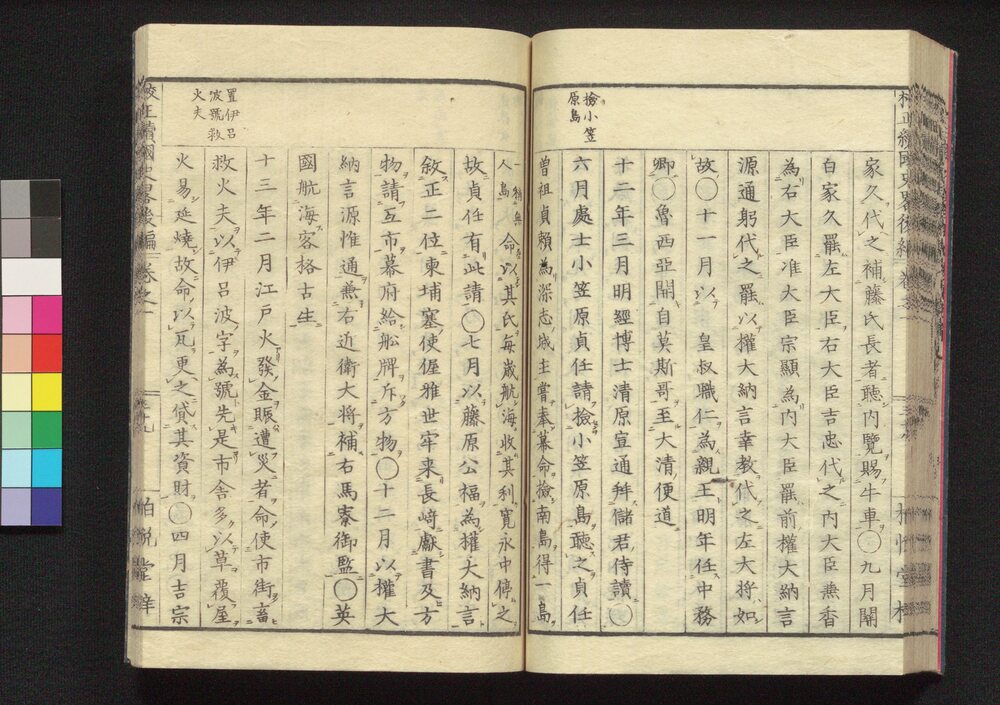 檢小笠
原島
家久代之補藤氏長者聽内覽賜牛車〇九月關
白家久罷左大臣右大臣吉忠代之内大臣兼香
為右大臣准大臣宗顯為内大臣罷前權大納言
源通躬代之罷以權大納言幸教代之左大将如
故〇十一月以 皇叔職仁為親王明年任中務
卿〇魯西亞開自莫斯哥至大清便道
十二年三月明經博士清原宣通拜儲君侍讀〇
六月處士小笠原貞任請檢小笠原島聽之貞任
曽祖貞頼為深志城主嘗奉幕命檢南島得一島
一稱無
人島
命以其氏毎歳航海收其利寛永中停之
故貞任有此請〇七月以藤原公福為權大納言
敘正二位柬埔寨使偓雅世牢来長﨑獻書及方
物請互市幕府給舩牌斥方物〇十二月以權大
納言源惟通兼右近衛大将補右馬寮御監〇英
國航海客格古生
置伊呂
波號救
火夫
十三年二月江戸火發金賑遭災者命使市街畜
救火夫以伊呂波字為號先是市舎多以草覆屋
火易延燒故命以瓦更之貸其資財〇四月吉宗
校正續國史畧後編 卷之一
柏悦堂梓